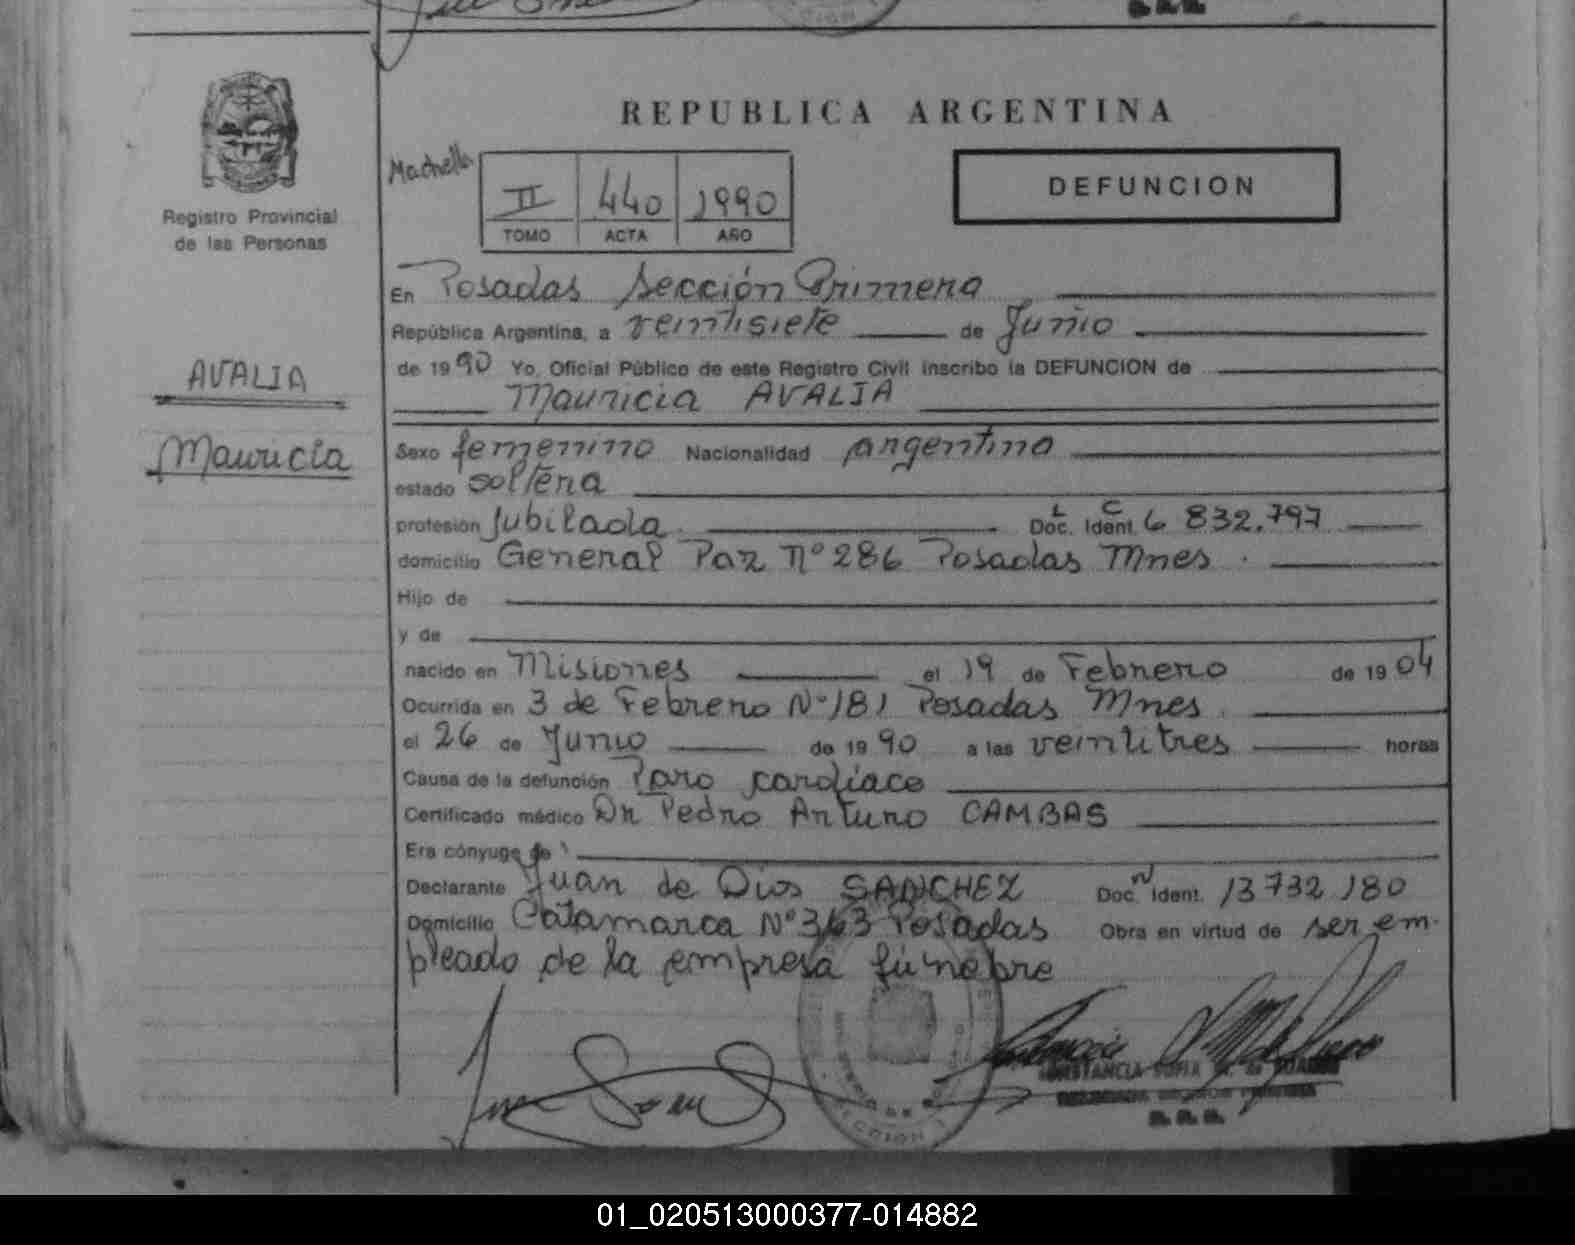 REPUBLICA ARGENTINA
Registro Provincial
de las Personas
II 440 1990
TOMO ACTA AÑO
DEFUNCION
AVALIA
Mauricia
En Posadas Sección Primera
República Argentina, a veintisiete de Junio
de 1990 Yo, Oficial Público de este Registro Civil inscribo la DEFUNCION de
Mauricia AVALIA
Sexo femenino Nacionalidad argentina
estado soltera
profesión Jubilada L C Doc. Ident. 6 832.797
domicilio General Paz Nº 286 Posadas Mnes.
Hijo de
y de
nacido en Misiones el 19 de Febrero de 1904
Ocurrida en 3 de Febrero Nº 181 Posadas Mnes.
el 26 de Junio de 1990 a las veintitres horas
Causa de la defunción Paro cardíaco
Certificado médico Dr Pedro Arturo CAMBAS
Era cónyuge de
Declarante Juan de Dios SANCHEZ Doc. N Ident. 13 732 180
Domicilio Catamarca Nº 363 Posadas Obra en virtud de ser em-
pleado de la empresa fúnebre
01_020513000377-014882